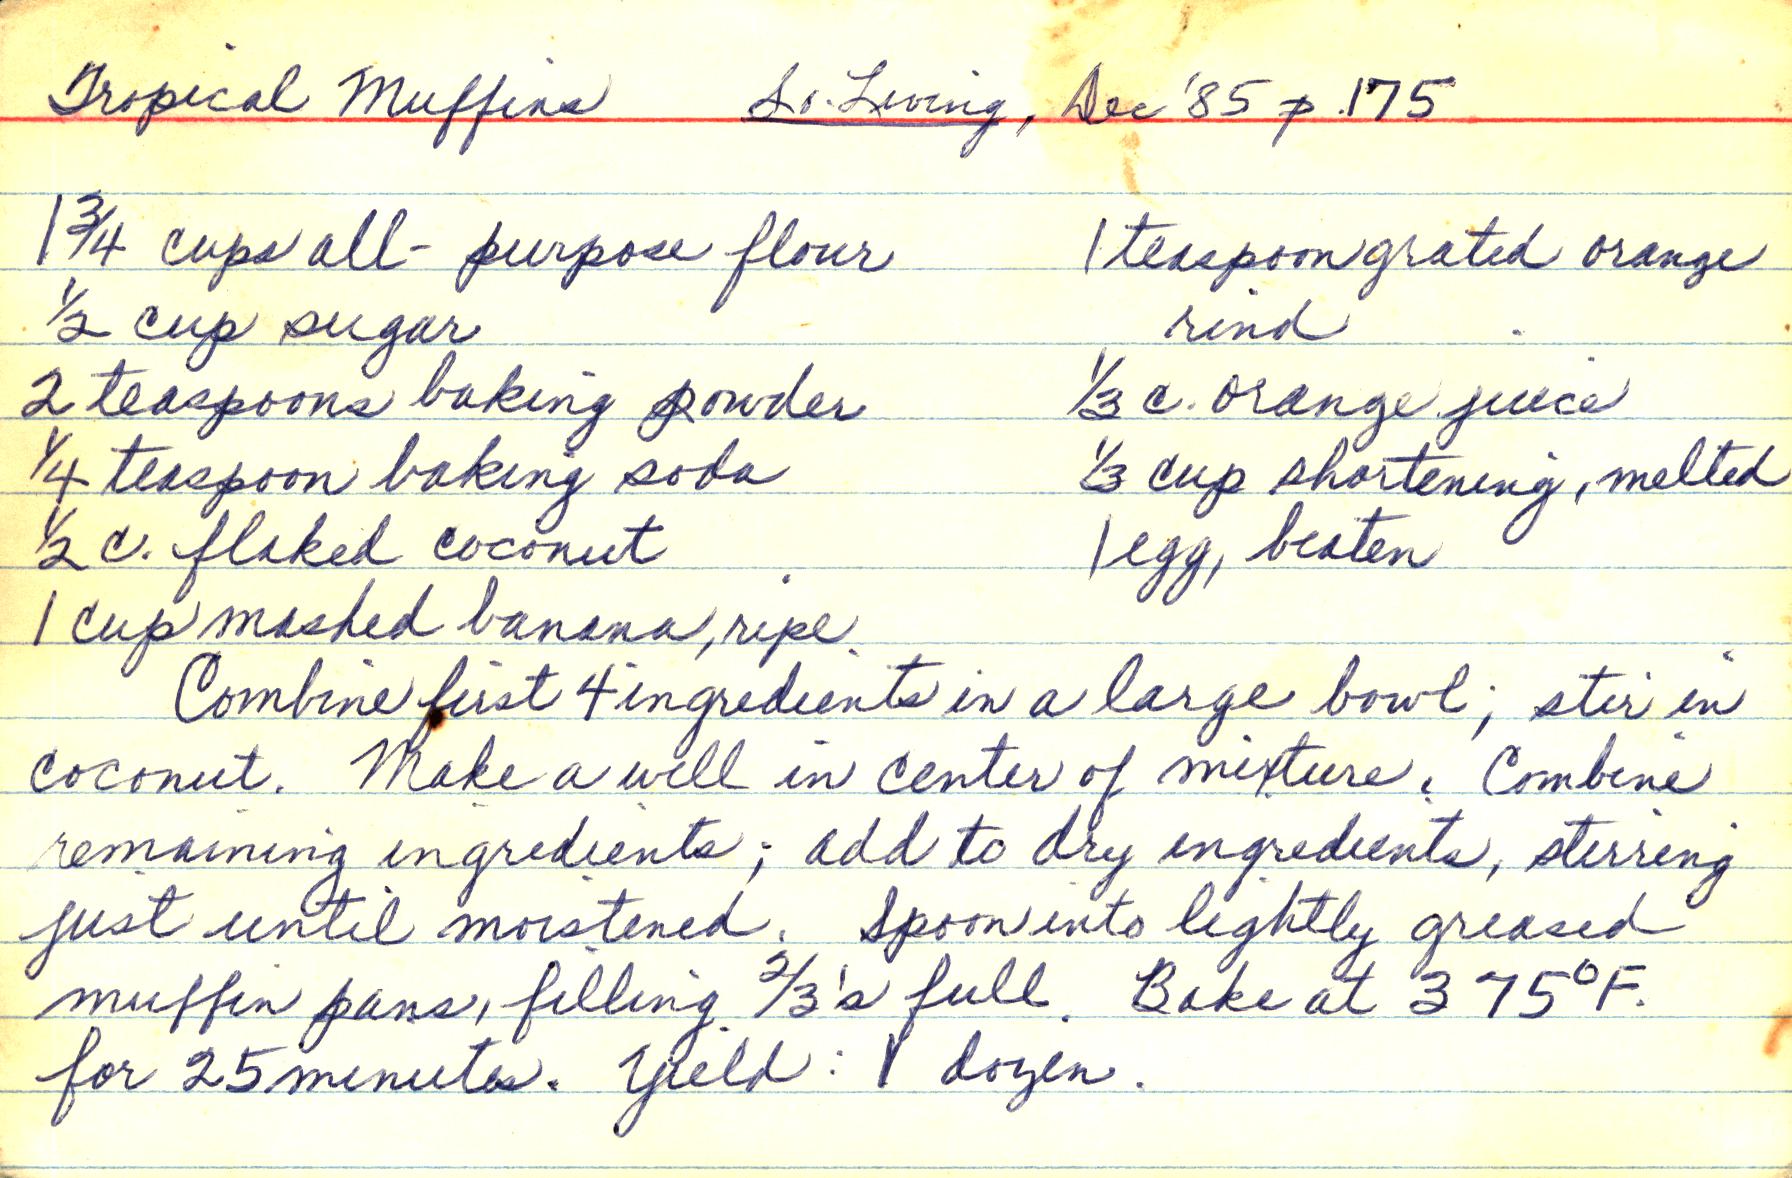 Tropical Muffins So. Living, Dec '85 p. 175
1 3/4 cups all-purpose flour
1/2 cup sugar
2 teaspoons baking powder
1/4 teaspoon baking soda
1/2 c. flaked coconut
1 cup mashed banana, ripe
1 teaspoon grated orange
rind
1/3 c. orange juice
1/3 cup shortening, melted
1 egg, beaten
Combine first 4 ingredients in a large bowl; stir in
coconut. Make a well in center of mixture. Combine
remaining ingredients; add to dry ingredients, stirring
just until moistened. Spoon into lightly greased
muffin pans, filling 2/3's full. Bake at 375°F.
for 25 minutes. Yield: 1 dozen.